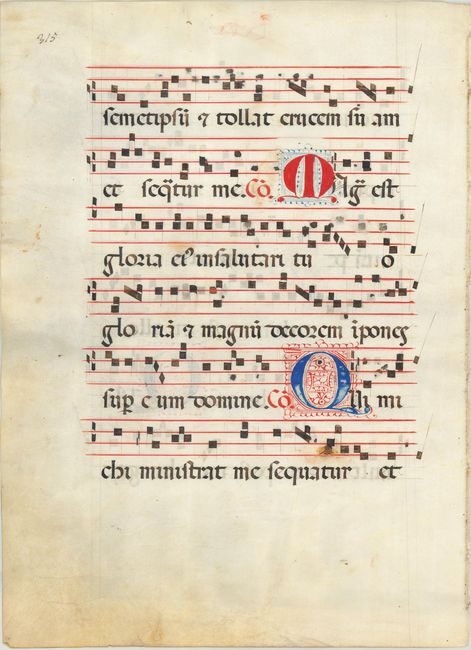 315
semetipsū ⁊ tollat crucem sū am
et seqͣtur me. Cō Mag̃ est
gloria ei⁹ in salutari tu o
glo riā ⁊ magnū decorem īpones
sup̱ e um domine. Cō Qui mi
chi ministrat me sequatur et